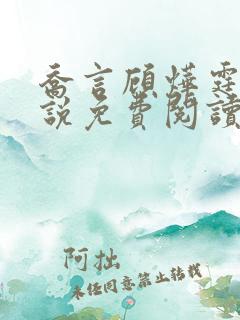 喬言顧燁霆
說免費閱讀
阿拙
未经同意禁止转载